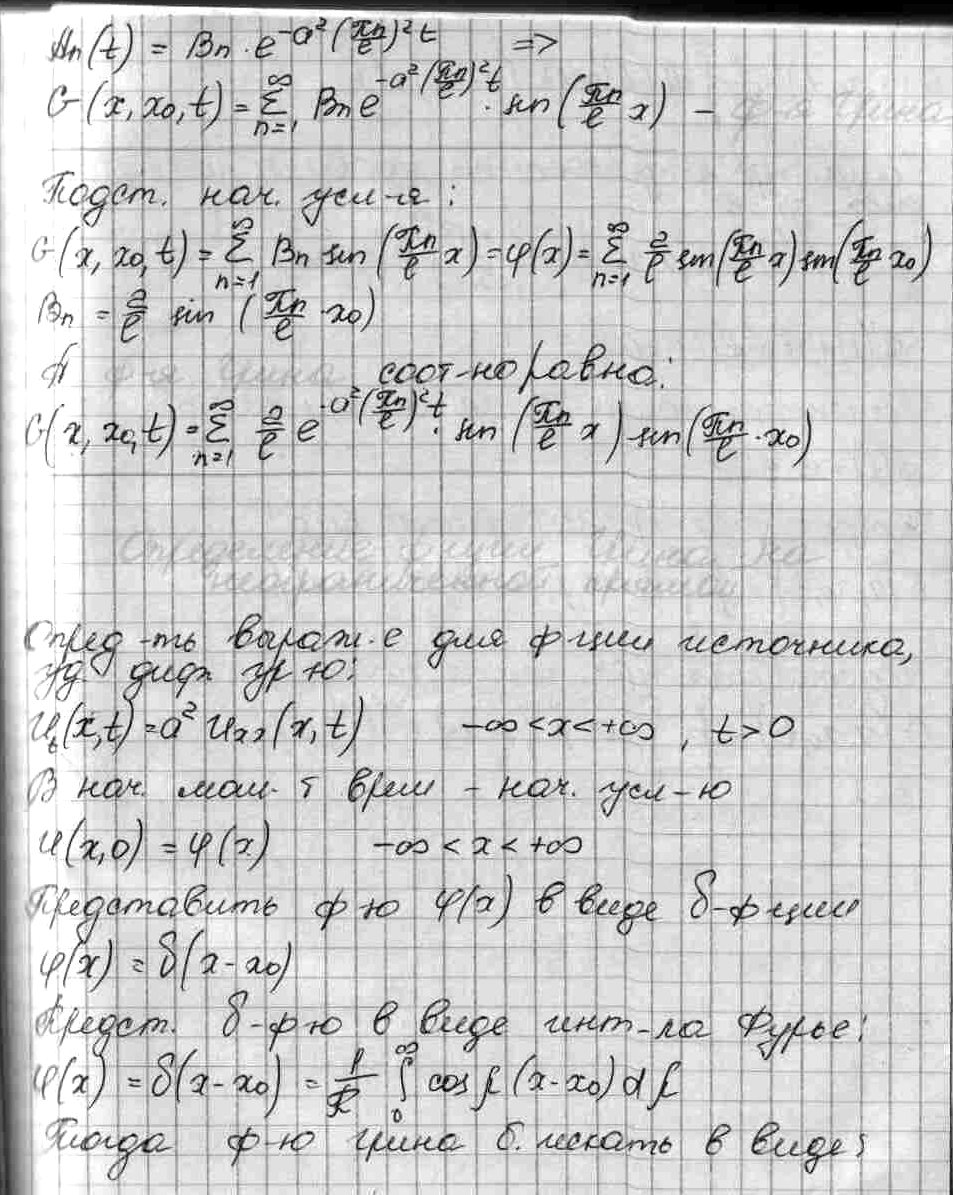 Aₙ(t) = Bₙ · e^{-a²(πn/l)²t} =>
G(x, x₀, t) = Σ_{n=1}^{∞} Bₙ e^{-a²(πn/l)²t} · sin(πn/l x) – ф-я Грина
Подст. нач. усл-я:
G(x, x₀, t) = Σ_{n=1}^{∞} Bₙ sin(πn/l x) = φ(x) = Σ_{n=1}^{∞} 2/l sin(πn/l x) sin(πn/l x₀)
Bₙ = 2/l sin(πn/l · x₀)
А ф-я Грина соот-но равна:
G(x, x₀, t) = Σ_{n=1}^{∞} 2/l e^{-a²(πn/l)²t} · sin(πn/l x) · sin(πn/l · x₀)
Определение ф-ции Грина на
неограниченной прямой
Опред-ть выраж-е для ф-ции источника,
уд. диф. ур-ю:
Uₜ(x,t) = a² Uₓₓ(x,t) -∞ < x < +∞, t > 0
В нач. мом-т врем – нач. усл-ю
U(x,0) = φ(x) -∞ < x < +∞
Представить ф-ю φ(x) в виде δ-ф-ции
φ(x) = δ(x-x₀)
Предст. δ-ф-ю в виде инт-ла Фурье:
φ(x) = δ(x-x₀) = 1/π ∫₀^∞ cos β(x-x₀) dβ
Тогда ф-ю Грина б. искать в виде: